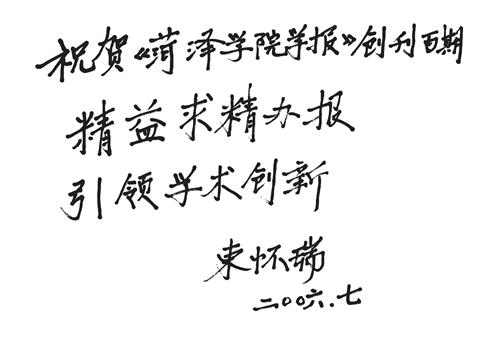 祝贺《菏泽学院学报》创刊百期
精益求精办报
引领学术创新
束怀瑞
二〇〇六.七